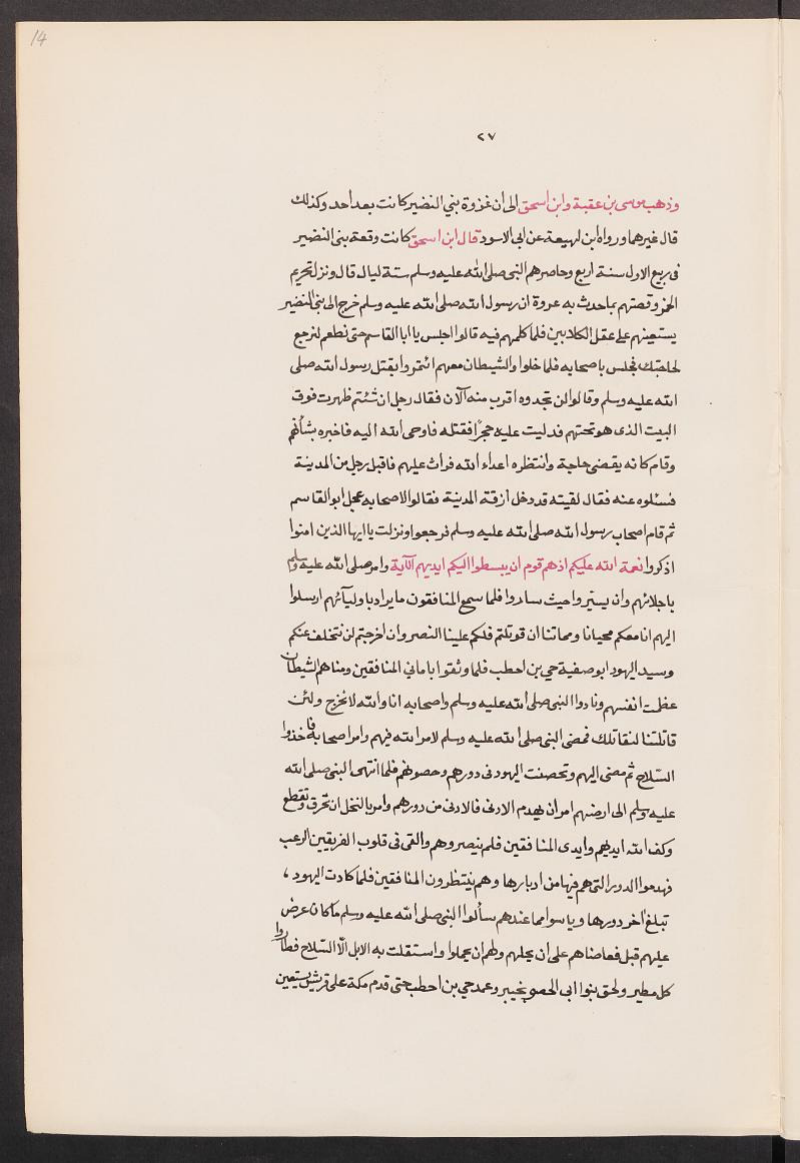 14
٢٧
وذهب موسى بن عقبة وابن اسحق الى ان غزوة بني النضير كانت بعد احد وكذلك
قال غيرهما ورواه ابن لهيعة عن ابي الاسود قال ابن اسحق كانت وقعة بنى النضير
فى ربيع الاول سنة اربع وحاصرهم النبى صلى الله عليه وسلم ستة ليال قال ونزل تحريم
الخمر وقصتهم بما حدث به عروة ان رسول الله صلى الله عليه وسلم خرج الى بنى النضير
يستعينهم على عقل الكلابيين فلما كلمهم فيه قالوا اجلس يا ابا القاسم حتى نطعم لنرجع
لحاجتك فجلس باصحابه فلما خلوا والشيطان معهم ائتمروا بقتل رسول الله صلى
الله عليه وسلم وقالوا لن تجدوه اقرب منه الآن فقال رجل ان شئتم ظهرت فوق
البيت الذى هو تحتهم فدليت عليه حجرًا فقتله فاوحى الله اليه فاخبره بشأنهم
وقام كانه يقضى حاجة وانتظره اعداء الله فراث عليهم فاقبل رجل من المدينة
فسئلوه عنه فقال لقيته قد دخل ازقة المدينة فقالوا لاصحابه عجل ابو القاسم
ثم قام اصحاب رسول الله صلى الله عليه وسلم فرجعوا ونزلت يا ايها الذين امنوا
اذكروا نعمة الله عليكم اذ هم قوم ان يبسطوا اليكم ايديهم الآية وامر صلى الله عليه وسلم
باجلائهم وان يستيروا حيث ساروا فلما سمع المنافقون ما يراد باوليآئهم ارسلوا
اليهم انا معكم محيانا ومماتنا ان قوتلتم فلكم علينا النصر وان اخرجتم لن نتخلف عنكم
وسيد اليهود ابو صفية حي بن احطب فلما وثقوا باماني المنافقين ومناهم الشيطان
عظمت انفسهم ونادوا النبى صلى الله عليه وسلم واصحابه انا والله لا نخرج ولئن
قاتلتنا لنقاتلك فمضى النبى صلى الله عليه وسلم لامر الله فيهم وامر اصحابه فاخذوا
السّلاح ثم مضى اليهم وتحصنت اليهود فى دورهم وحصونهم فلما انتهى النبى صلى الله
عليه وسلم الى ارضهم امر ان يهدم الادنى فالادنى من دورهم وامر بالنخل ان تحرق وتقطع
وكف الله ايديهم وايدى المنافقين فلم ينصروهم والقى فى قلوب الفريقين الرعب
فهدموا الدور التى هم فيها من ادبارها وهم ينتظرون المنافقين فلما كادت اليهود ،
تبلغ آخر دورها ويا سوا مما عندهم سألوا النبى صلى الله عليه وسلم ما كان عرض
عليهم قبل فقاضاهم على ان يجليهم ولهم ان يحملوا واستقلت به الابل الّا السّلاح فطاروا
كل مطير ولحق بنوا ابى الحصو بخيبر وعمد حي بن احطب حتى قدم مكة على قريش يستعين